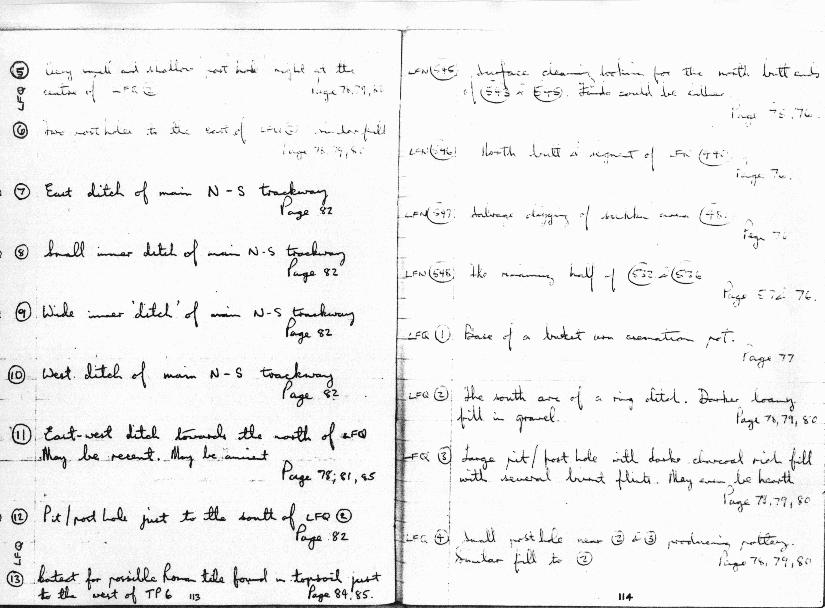 ⑤ Very small and shallow post hole right at the
centre of LFQ ②
Page 78, 79, 80
LFQ
⑥ Two post holes to the east of LFQ ② similar fill
Page 78, 79, 80
⑦ East ditch of main N-S trackway
Page 82
⑧ Small inner ditch of main N-S trackway
Page 82
⑨ Wide inner 'ditch' of main N-S trackway
Page 82
⑩ West ditch of main N-S trackway
Page 82
⑪ East-west ditch towards the north of LFQ
May be recent. May be ancient
Page 78, 81, 85
⑫ Pit/post hole just to the south of LFQ ②
Page 82
LFQ
⑬ Context for possible Roman tile found in topsoil just
to the west of TP6
Page 84, 85.
113
LFN 545 Surface cleaning looking for the north butt ends
of 543 & 545. Finds could be either
Page 75, 76.
LFN 546 North butt & segment of LFN
Page 76.
LFN 547 Salvage digging of area
Page 76
LFN 548 The remaining half of 532 & 536
Page 76.
LFQ ① Base of a bucket urn cremation pot.
Page 77
LFQ ② The south arc of a ring ditch. Darker loamy
fill in gravel.
Page 78, 79, 80
LFQ ③ Large pit/post hole with dark charcoal rich fill
with several burnt flints. May even be hearth
Page 78, 79, 80
LFQ ④ Small post hole near ② & ③ producing pottery.
Similar fill to ②
Page 78, 79, 80
114